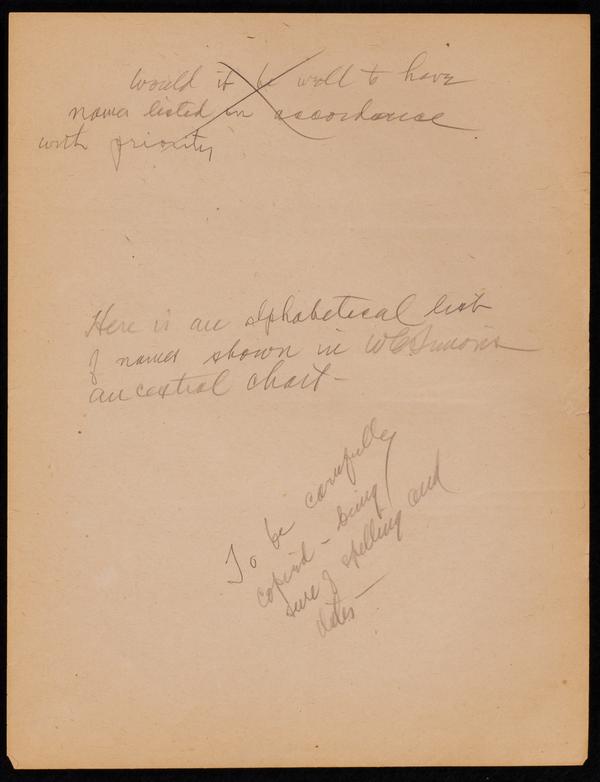 Would it be well to have
names listed in accordance
with priority
Here is an alphabetical list
of names shown in W C Simons
ancestral chart-
To be carefully
copied - being
sure of spelling and
dates -